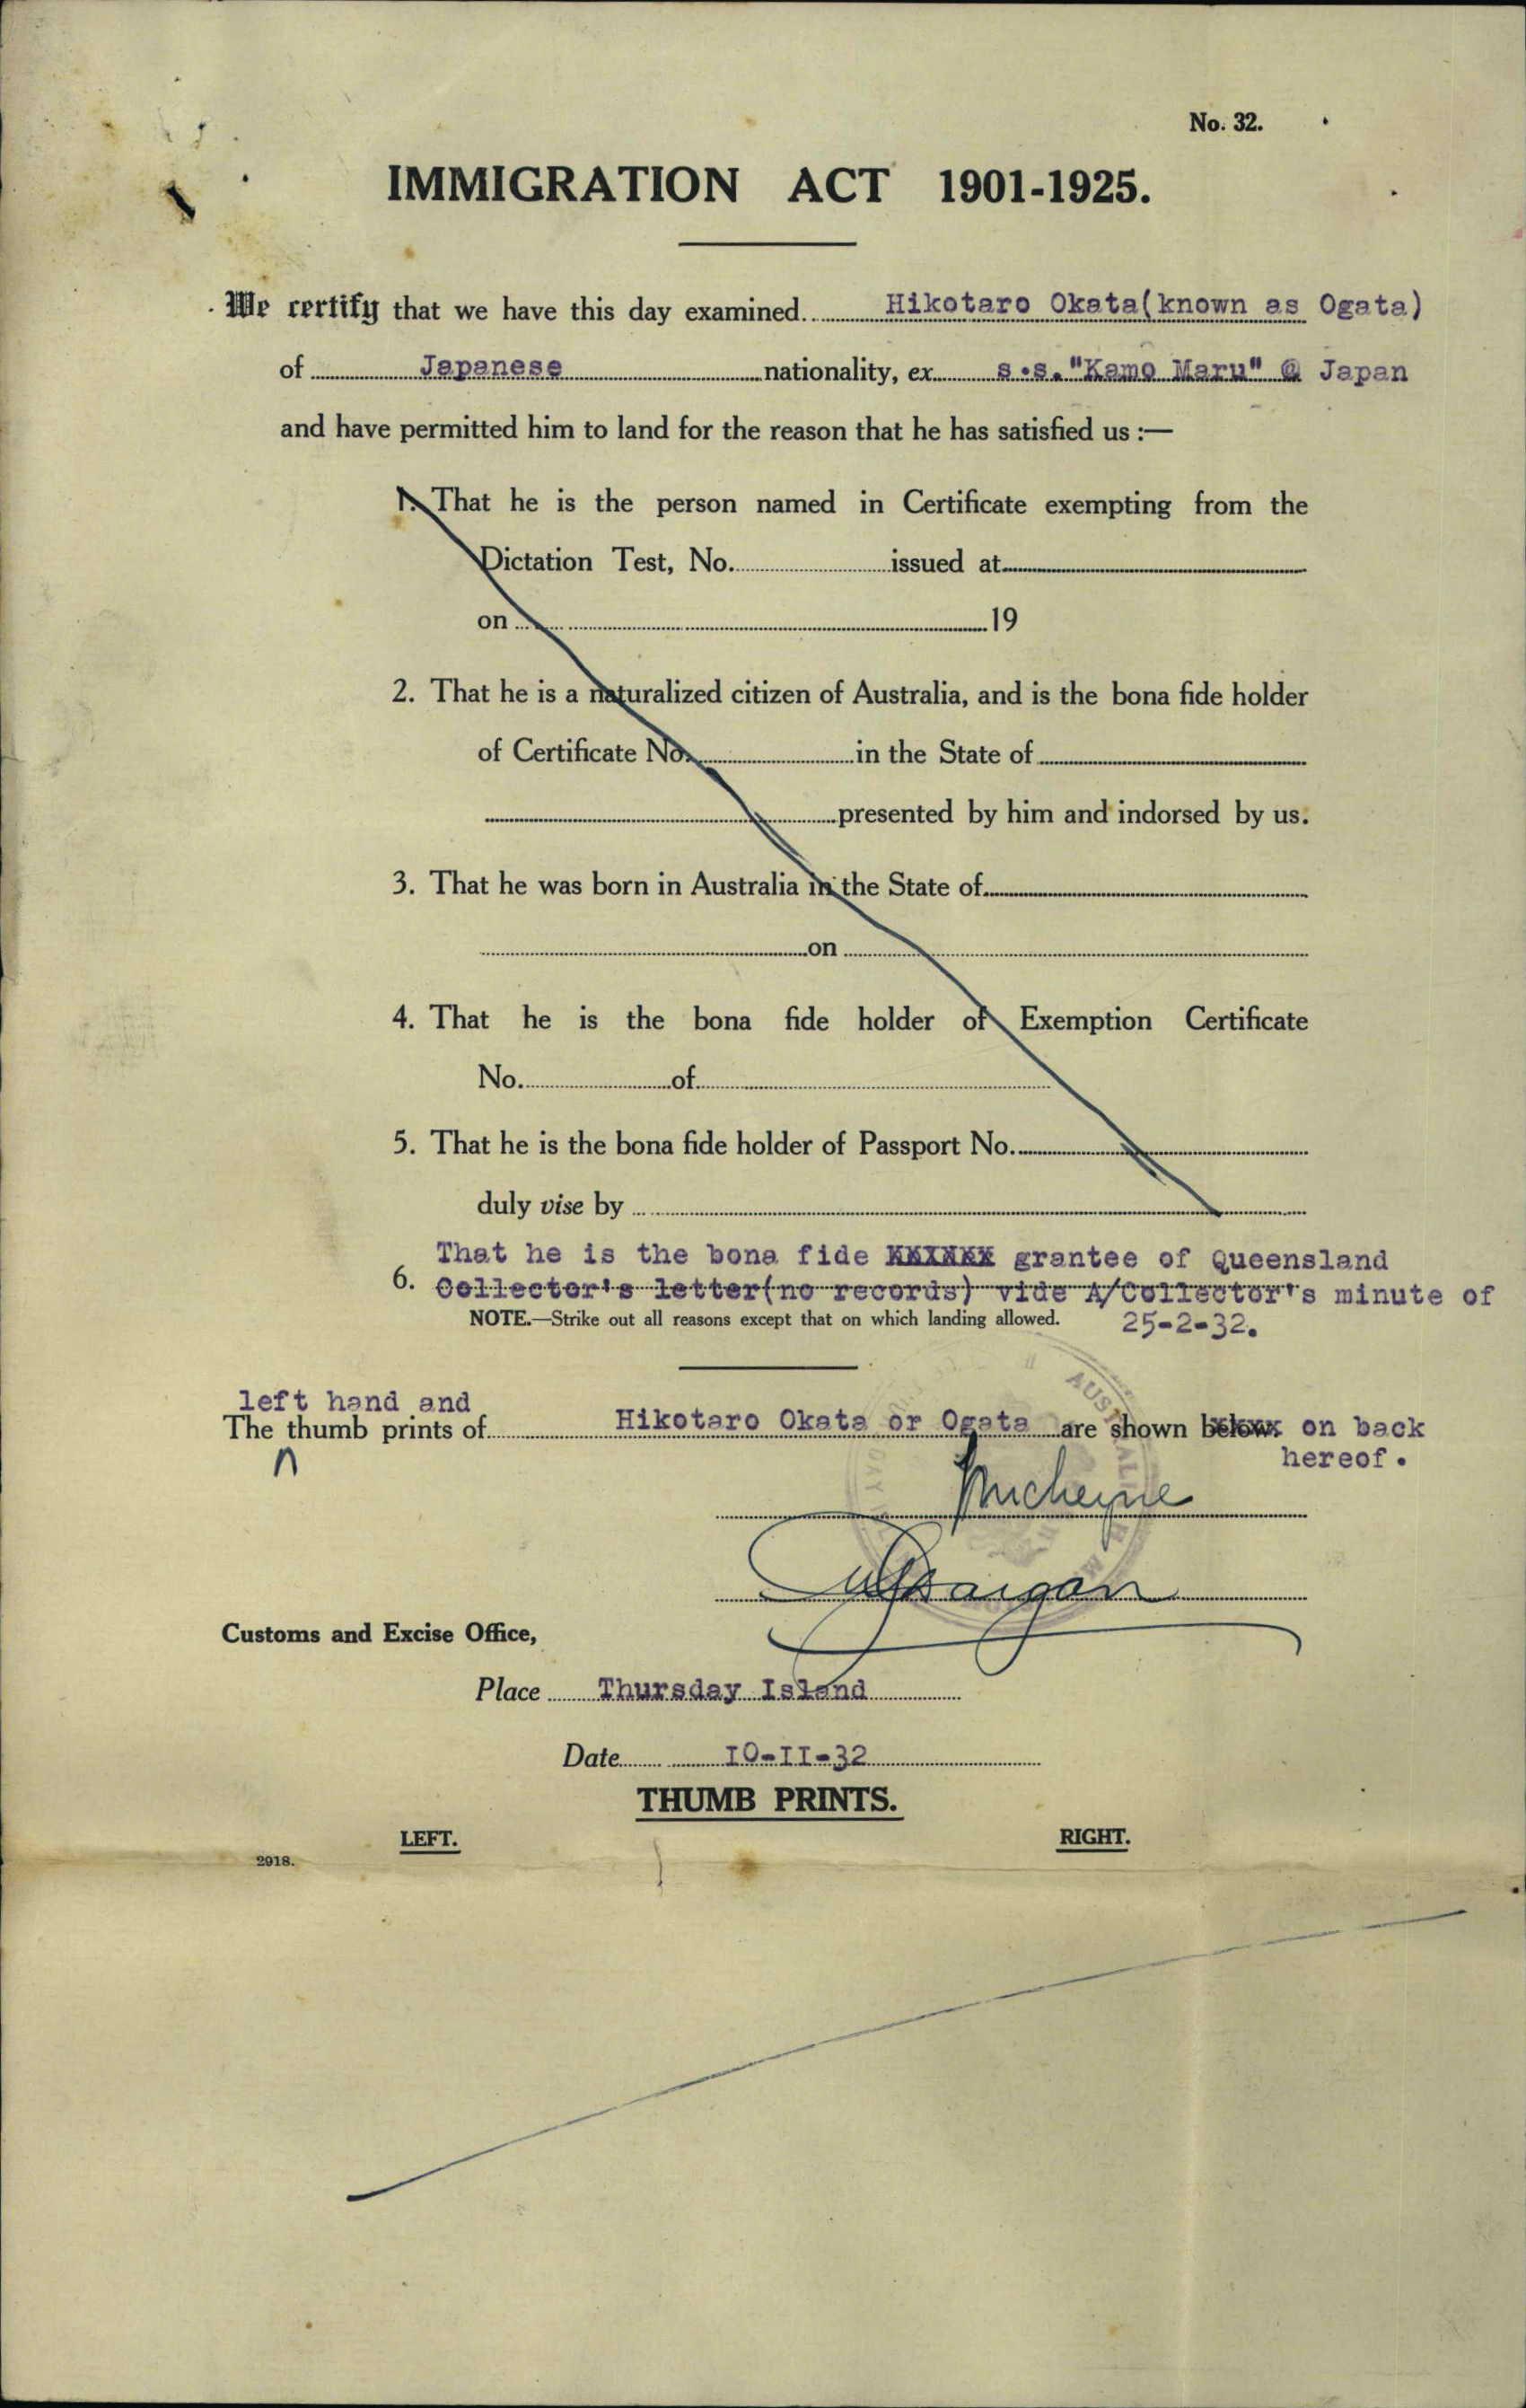 No. 32.
IMMIGRATION ACT 1901-1925.
We certify that we have this day examined Hikotaro Okata(known as Ogata)
of Japanese nationality, ex s.s. "Kamo Maru" @ Japan
and have permitted him to land for the reason that he has satisfied us :—
1. That he is the person named in Certificate exempting from the
Dictation Test, No. issued at
on 19
2. That he is a naturalized citizen of Australia, and is the bona fide holder
of Certificate No. in the State of
presented by him and indorsed by us.
3. That he was born in Australia in the State of
on
4. That he is the bona fide holder of Exemption Certificate
No. of
5. That he is the bona fide holder of Passport No.
duly vise by
That he is the bona fide grantee of Queensland
6. Collector's letter(no records) vide A/Collector's minute of
NOTE.—Strike out all reasons except that on which landing allowed. 25-2-32.
left hand and
The thumb prints of Hikotaro Okata or Ogata are shown below on back
hereof.
Customs and Excise Office,
Place Thursday Island
Date 10-II-32
THUMB PRINTS.
LEFT. RIGHT.
2918.